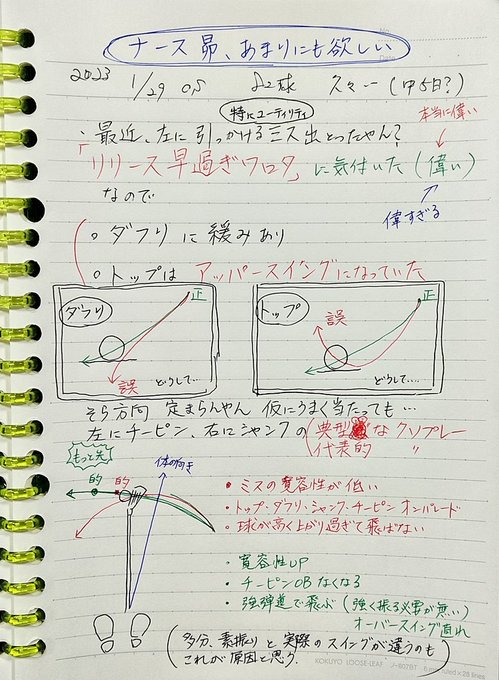 ナース昴、あまりにも欲しい
2023 1/29 05 球 久々ー(中5日?)
特にユーティリティ
本当に偉い
最近、左に引っかけるミス出とったやん?
「リリース早過ぎワロタ」に気付いた(偉い)
なので
偉すぎる
○ ダフリに緩みあり
○ トップはアッパースイングになっていた
ダフリ
正
誤
どうして...
トップ
正
誤
どうして....
そら方向 定まらんやん 仮にうまく当たっても…
左にチーピン、右にシャンクの(典型的なクソプレー
代表的 〃
もっと先
的
的
体の向き
・ミスの寛容性が低い
・トップ・ダフリ・シャンク・チーピン オンパレード
・球が高く上がり過ぎて飛ばない
・寛容性UP
・チーピンOBなくなる
・強弾道で飛ぶ(強く振る必要が無い)
オーバースイング直れ
(多分、素振りと実際のスイングが違うのも
これが原因と思う.)
KOKUYO LOOSE-LEAF